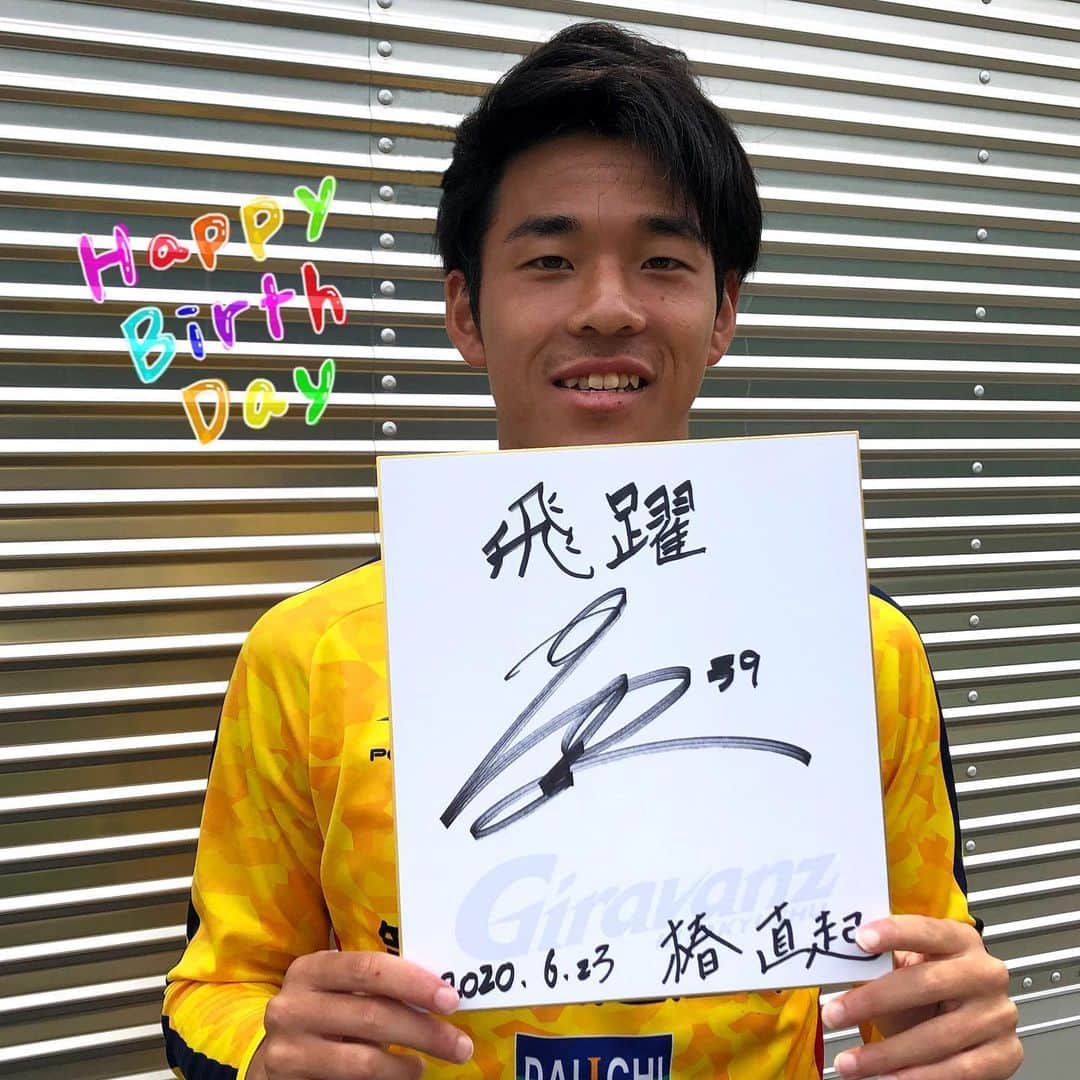 Happy
Birth
Day
飛躍
39
Giravanz
2020.6.23 椿 直起
DAIICHI